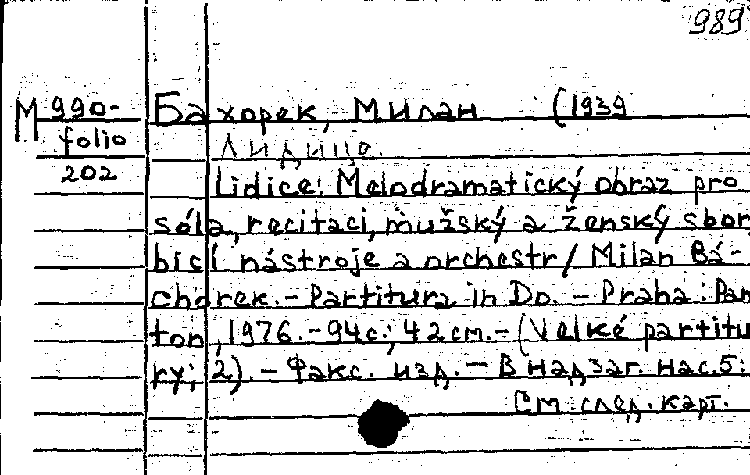 989
M 990-
folio
202
Бахорек, Милан (1939
Лидице.
Lidice: Melodramatický obraz pro
sóla, recitaci, mužský a ženský sbor
bicí nástroje a orchestr / Milan Bá-
chorek. - Partitura in Do. - Praha: Pan
ton, 1976. - 94 с.; 42 cm. - (Velké partitu
ry; 2). - Факс. изд. - В надзаг. нас. 5:
См. след. карт.